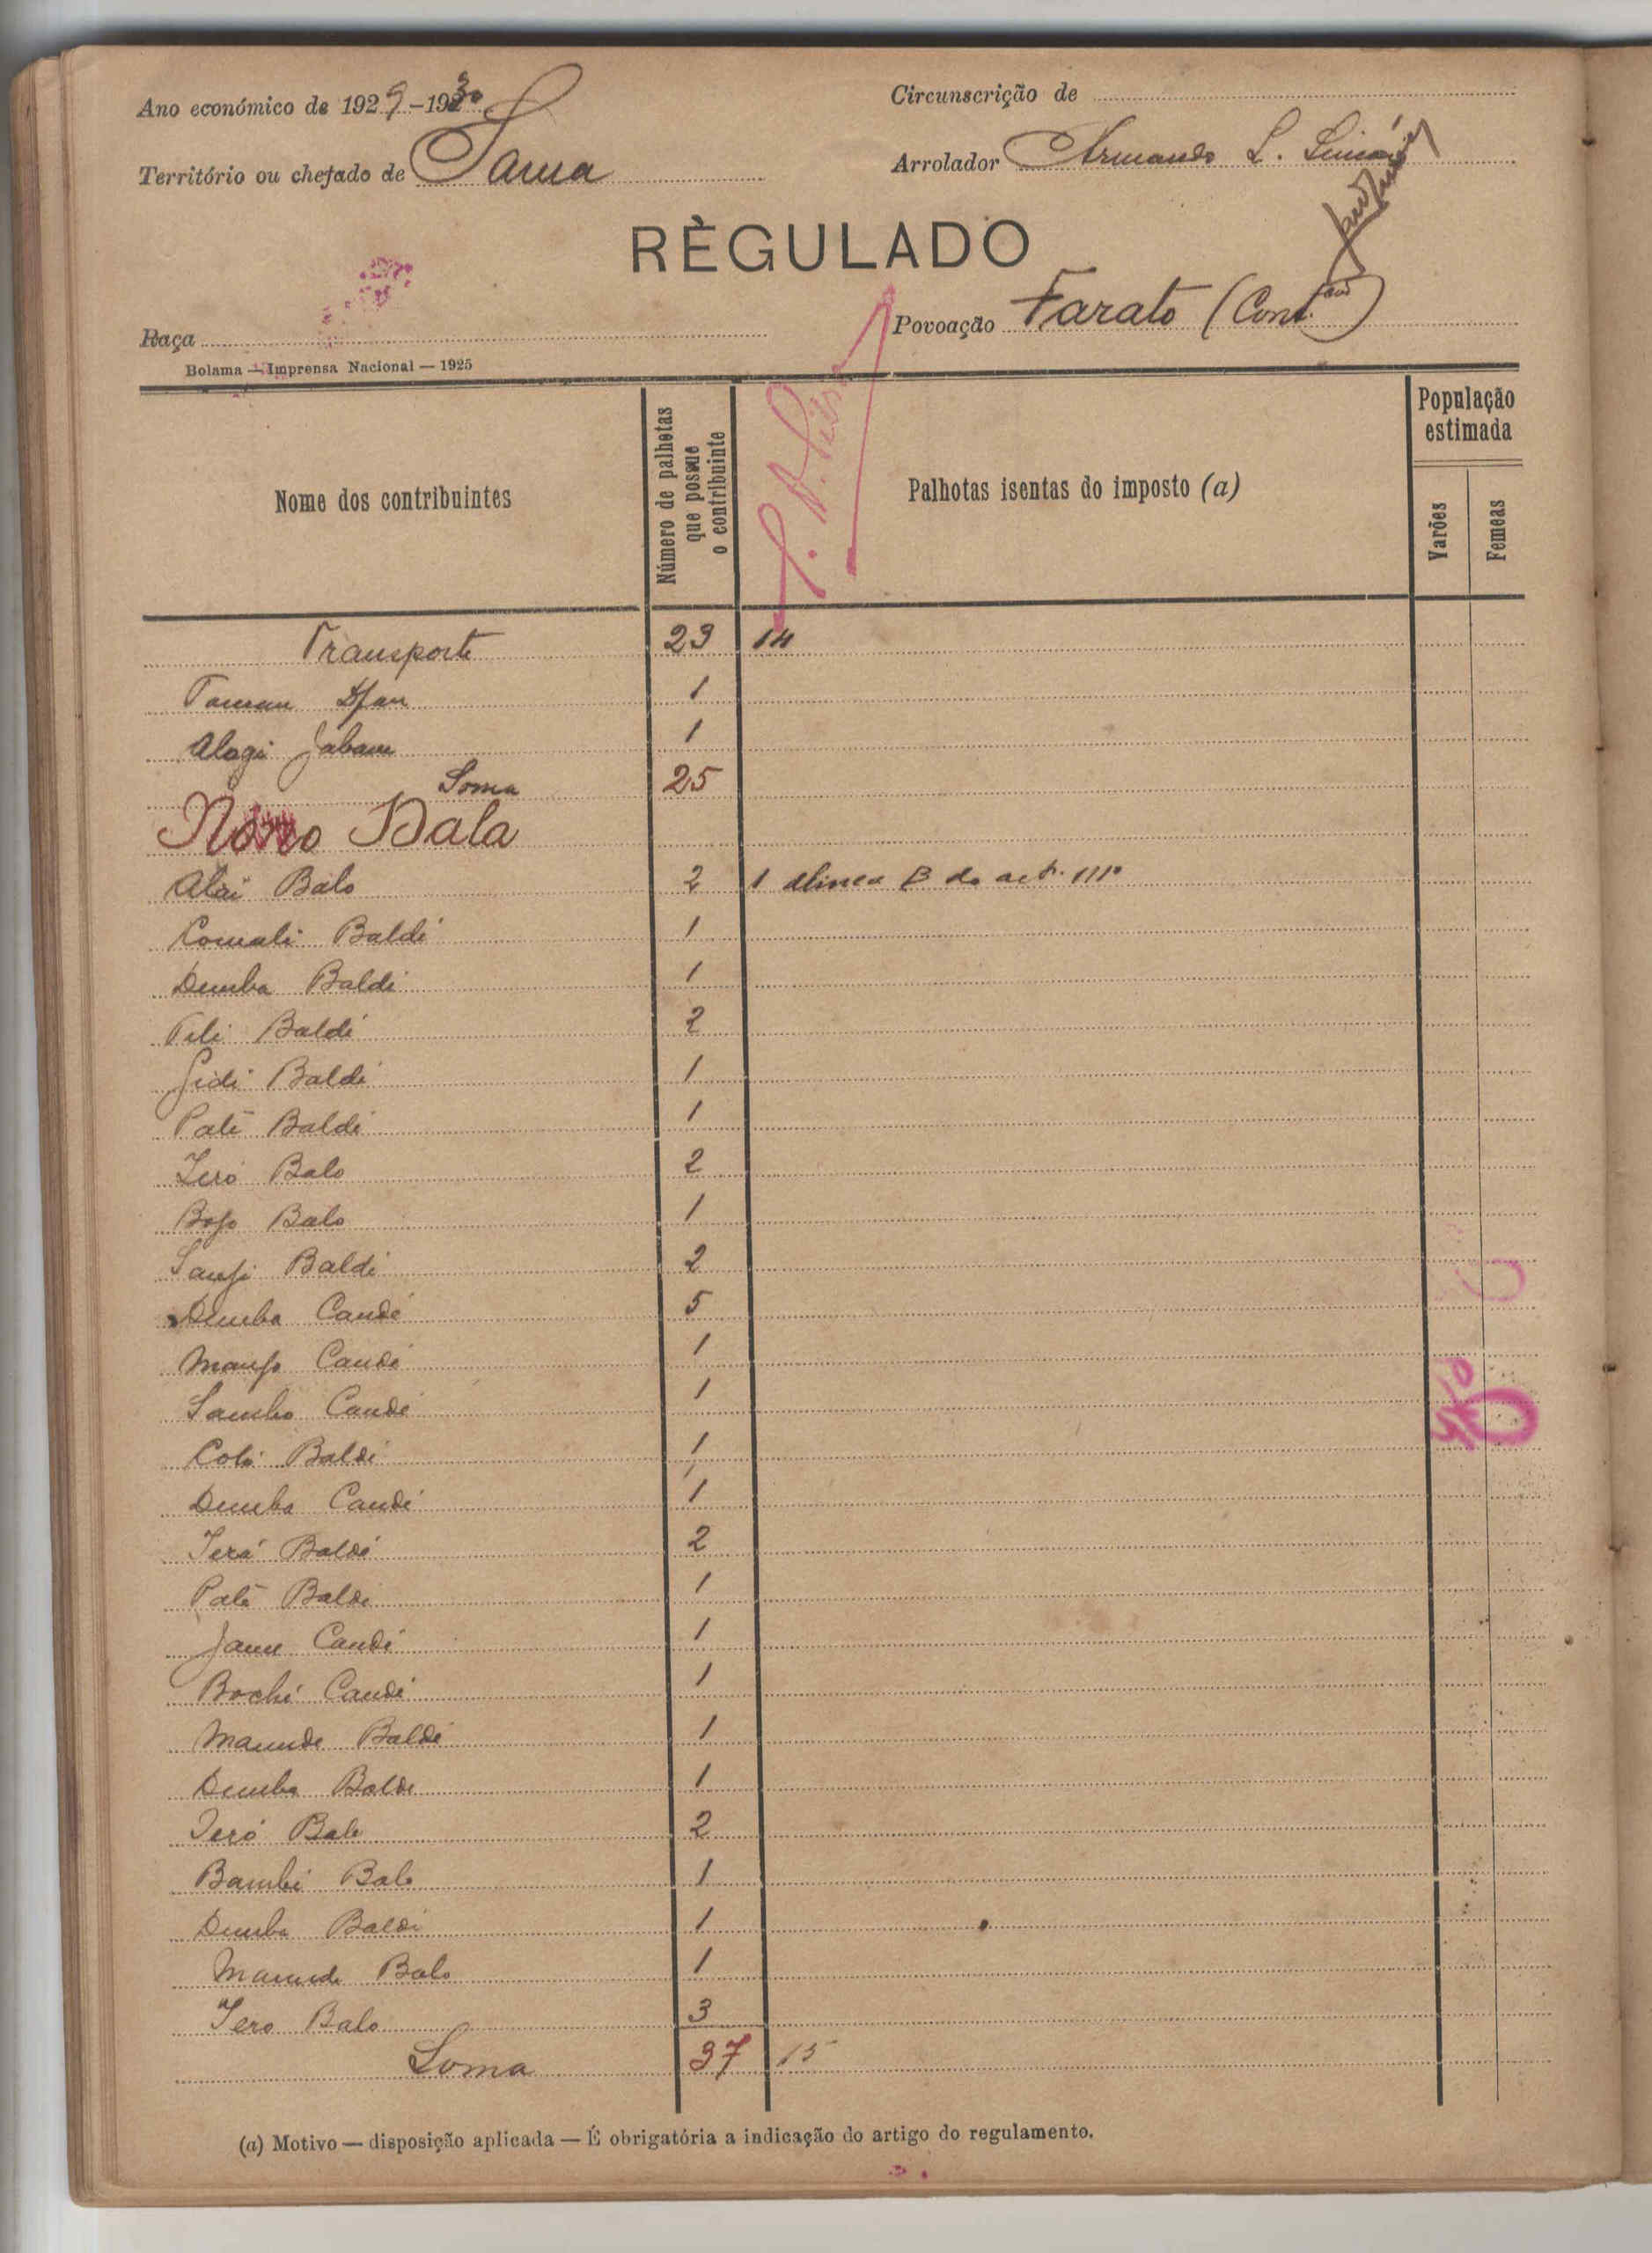 Ano económico de 1929-1930
Circunscrição de
Território ou chefado de Sama
Arrolador Armando L.
RÈGULADO
Raça
Povoação Farato (Cont.)
Bolama — Imprensa Nacional — 1925
Nome dos contribuintes
Número de palhotas que possue o contribuinte
Palhotas isentas do imposto (a)
População estimada
Varões
Femeas
Transporte 23 14
1
Alagi 1
Soma 25
Bala
Alai Balo 2 1 alinea B do art. 111º
Comali Baldé 1
Demba Baldé 1
Baldé 2
Baldé 1
Paté Baldé 1
Ieró Balo 2
Balo 1
Baldé 2
Demba Candé 5
Candé 1
Samba Candé 1
Baldé 1
Demba Candé 1
Ieró Baldé 2
Paté Baldé 1
Candé 1
Candé 1
Mamude Baldé 1
Demba Baldé 1
Ieró Balo 2
Balo 1
Demba Baldé 1
Mamude Balo 1
Iero Balo 3
Soma 37 15
(a) Motivo — disposição aplicada — É obrigatória a indicação do artigo do regulamento.